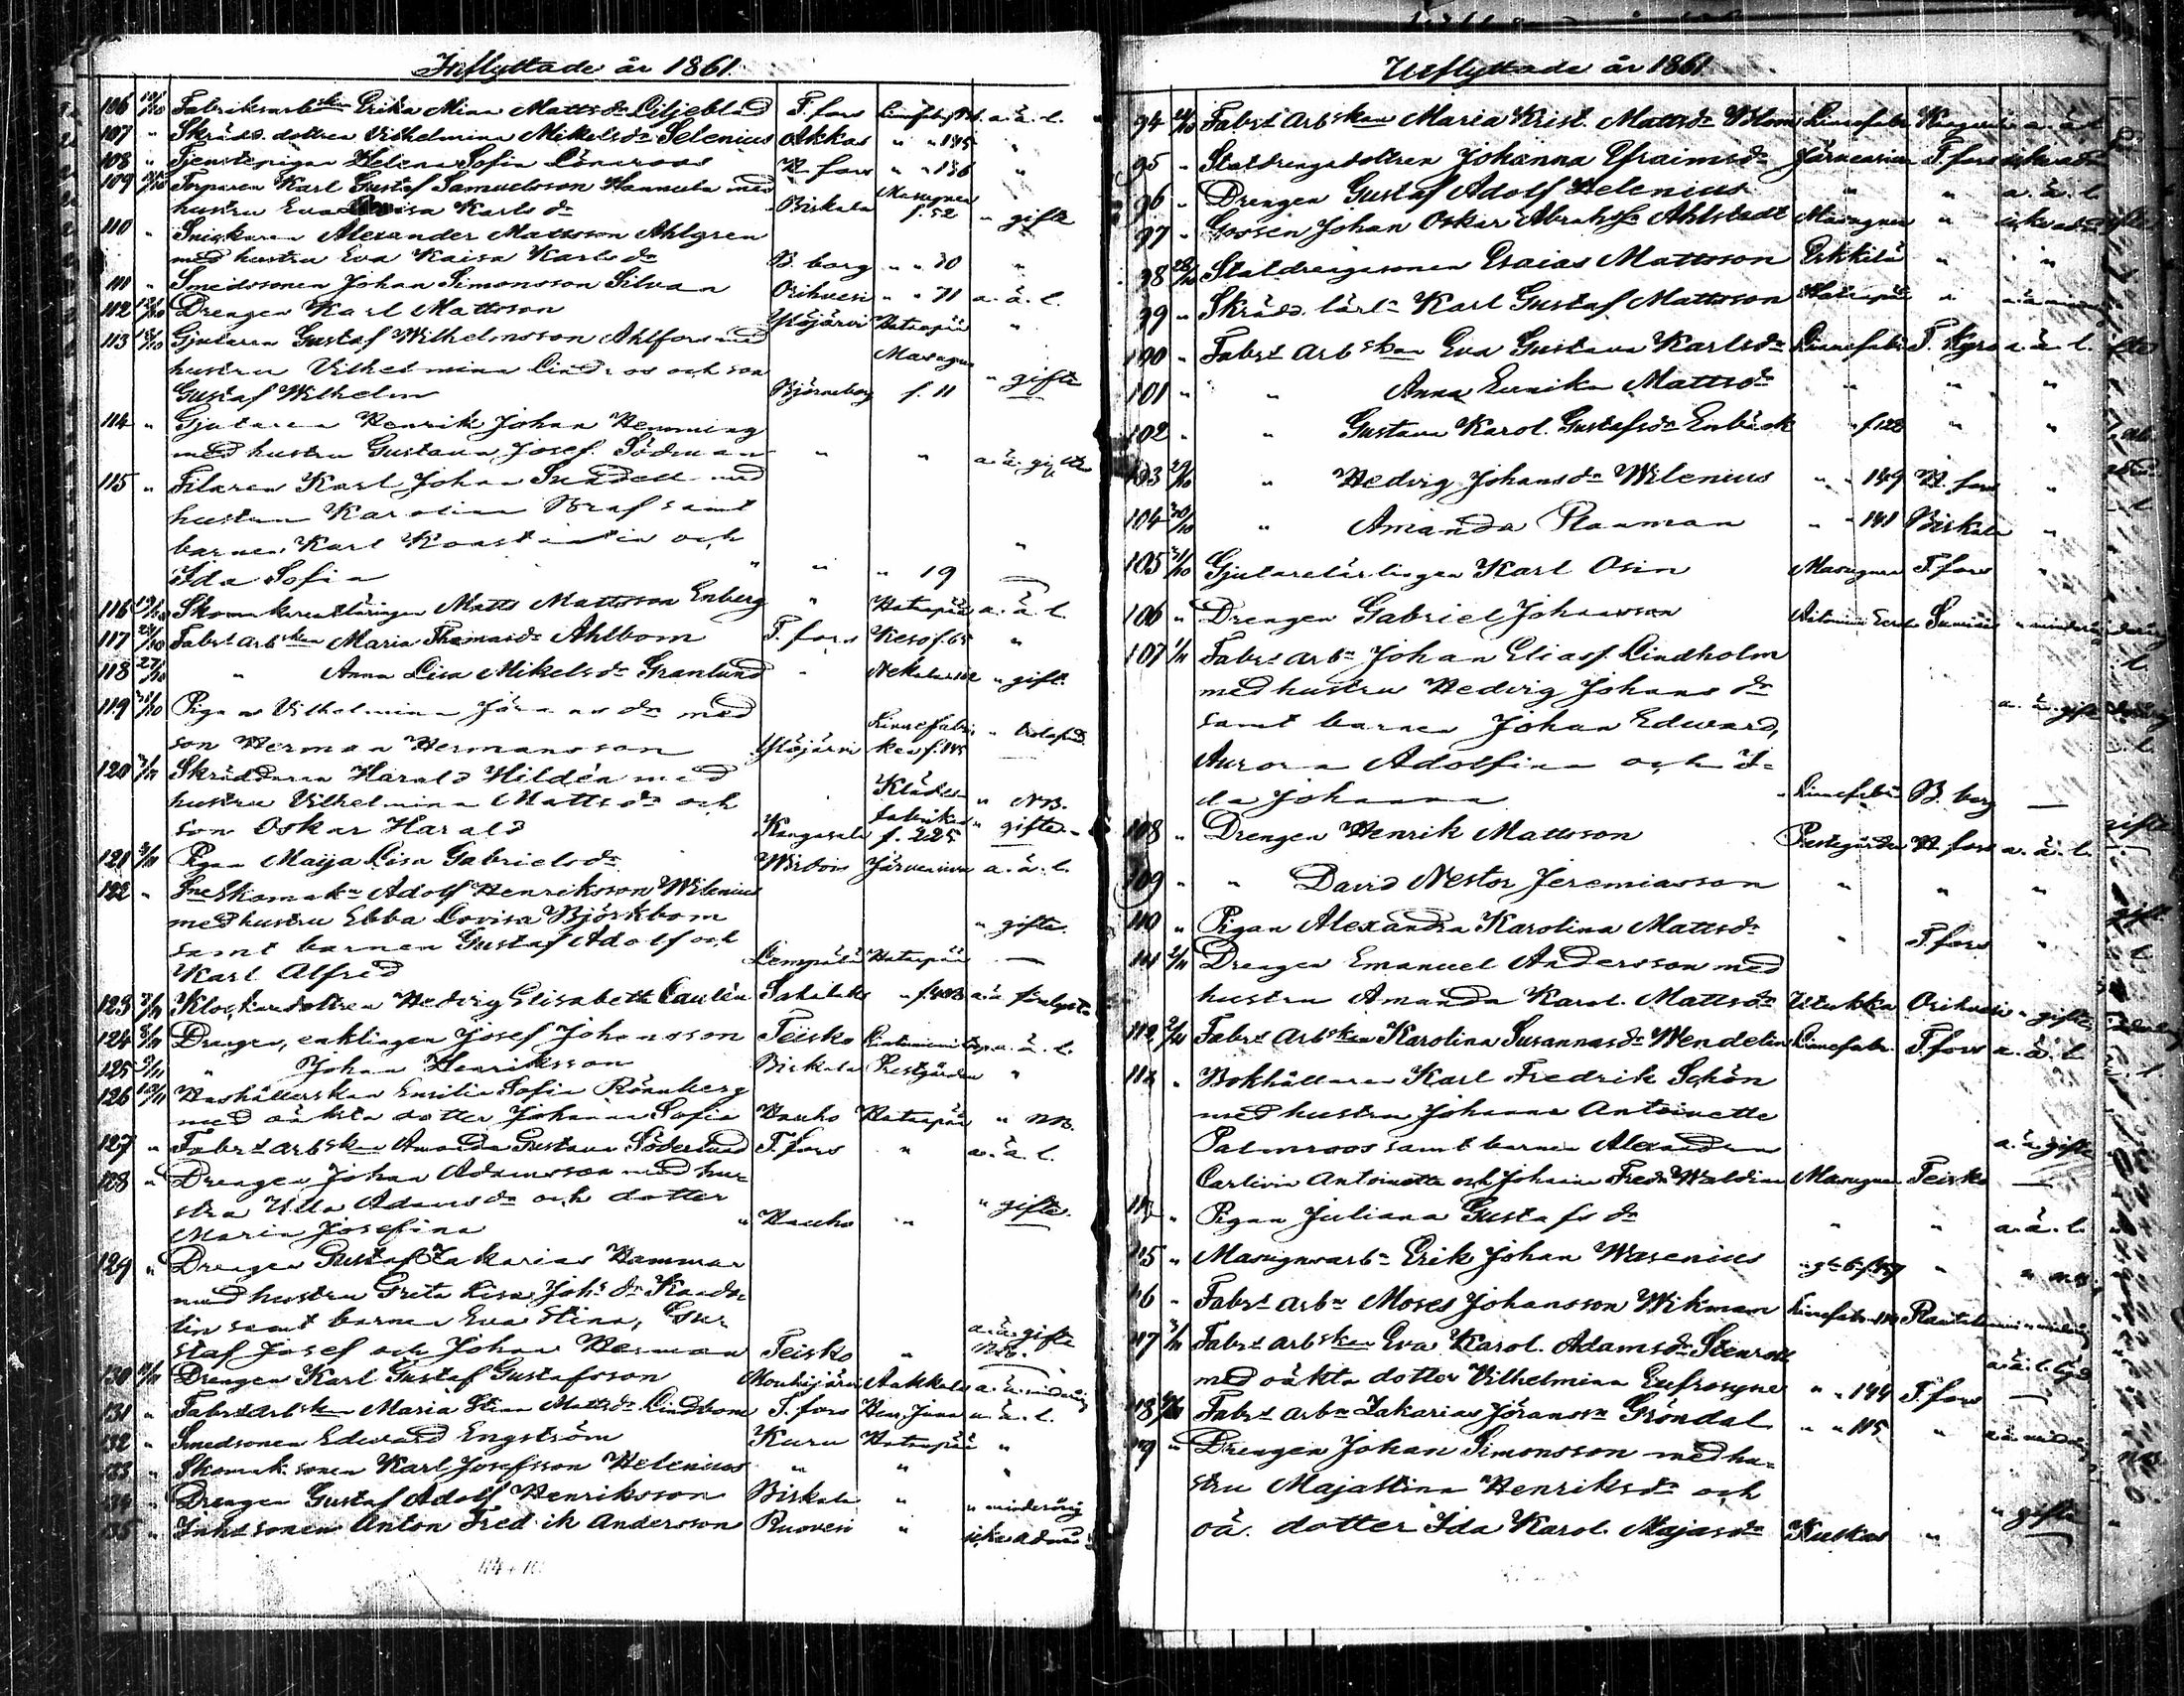 Inflyttade år 1861.
106 12/10 Fabriksarbskan Erika Mina Mattsdr Liljeblad T. fors a. ä. l.
107 " Skrädd. dottren Vilhelmina Mikelsdr Selenius Akkas " " 185 "
108 " Tjenstepigan Helena Sofia Lönnroos H. fors " " 136 "
109 Torparen Karl Gustaf Samuelsson Hannula med
hustru Eva Lovisa Karlsdr Birkala Masugnen f. 52 " gifte
110 " Snickaren Alexander Mattsson Ahlgren
med hustru Eva Kaisa Karlsdr B. borg " " 70 "
111 " Smedssonen Johan Simonsson Silvan Orihvesi " " 71 a. ä. l.
112 12/10 Drengen Karl Mattsson Ylöjärvi Hatanpää "
113 Gjutaren Gustaf Wilhelmsson Ahlfors med
hustru Vilhelmina Lindroos och son
Gustaf Wilhelm Björneborg Masugnen f. 11 " gifte
114 " Gjutaren Henrik Johan Hemming
med hustru Gustava Josef. Södman " " a. ä. gifte
115 " Filaren Karl Johan Sundell med
hustru Karolina Braf samt
barnen Karl Konstantin och "
Ida Sofia " " " 19
116 Skomakarelärlingen Matts Mattsson Enberg " Hatanpää a. ä. l.
117 Fabrs arbskan Maria Thomasdr Ahlbom T. fors Keso f. 65 "
118 27/10 " Anna Lisa Mikelsdr Granlund " " gift
119 31/10 Pigan Vilhelmina Jöransdr med
son Herman Hermansson Ylöjärvi Linnefabriken f. 145 "
120 Skräddaren Harald Hildén med
hustru Vilhelmina Mattsdr och Klädesfabriken " NB.
son Oskar Harald Kangasala f. 225 " gifte
121 Pigan Maija Lisa Gabrielsdr Wirdois Järvensivu a. ä. l.
122 " Skomakn Adolf Henriksson Wilenius
med hustru Ebba Lovisa Björkbom " gifte
samt barnen Gustaf Adolf och
Karl Alfred Lempälä Hatanpää
123 Klockaredottren Hedvig Elisabeth Caulén Sahalaks
124 Drengen, enklingen Josef Johansson Teisko a. ä. l.
125 " Johan Henriksson Birkala Prestgården "
126 Hushållerskan Emilia Sofia Rönnberg
med oäkta dotter Johanna Sofia Hauho Hatanpää " NB.
127 " Fabrs arbskan Amanda Gustava Söderlund T. fors " a. ä. l.
128 " Drengen Johan Adamsson med hu-
stru Ulla Adamsdr och dotter " gifte.
Maria Josefina " Hauho "
129 " Drengen Gustaf Zakarias Hammar
med hustru Greta Lisa Johsdr
samt barnen Eva Stina, Gu-
staf Josef och Johan Herman Teisko " a. ä. gifte NB.
130 Drengen Karl Gustaf Gustafsson Mouhijärvi Aakkula a. ä. minderårig
131 " Fabrs arbskan Maria Stina Mattsdr Lindbom T. fors a. ä. l.
132 " Smedsonen Edvard Engström Kuru Hatanpää "
133 " Skomak. sonen Karl Josefsson Helenius " " "
134 " Drengen Gustaf Adolf Henriksson Birkala " " minderårig
135 " Inhs sonen Anton Fredrik Andersson Ruovesi " icke adm.

Utflyttade år 1861
94 Fabrs Arbskan Maria Krist. Mattsdr Linnefabr. a. ä. l.
95 " Statdrengsdottren Johanna Efraimsdr Järvensivu T. fors icke adm.
96 " Drengen Gustaf Adolf Helenius " " a. ä. l.
97 " Gossen Johan Oskar Abrahsn Ahlstedt Masugnen " icke adm.
98 Statdrengssonen Esaias Mattsson Erkkilä " "
99 " Skrädd. lärl. Karl Gustaf Mattsson Hatanpää "
100 " Fabrs Arbskan Eva Gustava Karlsdr Linnefabr. T. Kyro a. ä. l.
101 " " Anna Eerika Mattsdr " " "
102 " " Gustava Karol. Gustafsdr Enbäck " f. 123 " "
103 29/10 " Hedvig Johansdr Wilenius " " 149 H. fors "
104 30/10 " Amanda Plauman " " 141 Birkala "
105 31/10 Gjutarelärlingen Karl Osin Masugnen T. fors "
106 " Drengen Gabriel Johansson " minderårig
107 Fabrs arbn Johan Eliass. Lindholm
med hustru Hedvig Johansdr
samt barnen Johan Edward, a. ä. gifte
Aurora Adolfina och I-
da Johanna Linnefabr. B. borg
108 " Drengen Henrik Mattsson Prestegården H. fors a. ä. l.
109 " " David Nestor Jeremiasson " " "
110 " Pigan Alexandra Karolina Mattsdr " T. fors "
111 Drengen Emanuel Andersson med
hustru Amanda Karol. Mattsdr Orihvesi " gifte
112 Fabrs Arbskan Karolina Susannasdr Wendelin Linnefabr. T. fors a. ä. l.
113 " Bokhållaren Karl Fredrik Schön
med hustru Johanna Antoinette
Palmroos samt barnen Alexandra a. ä. gifte
Carlivia Antoinette och Johann Fredr Waldiar Masugnen Teisko
114 " Pigan Juliana Gustafsdr " " a. ä. l.
115 " Masugnsarbn Erik Johan Wasenius "
116 " Fabrs arbn Moses Johansson Wikman
117 Fabrs arbskan Eva Karol. Adamsdr Stenroth
med oäkta dotter Vilhelmina Eufrosyne " " 144 T. fors
118 Fabrs arbn Zakarias Jöransson Gröndal " " 115 "
119 " Drengen Johan Simonsson med hu-
stru Majastina Henriksdr och
oä. dotter Ida Karol. Majasdr " " gifte